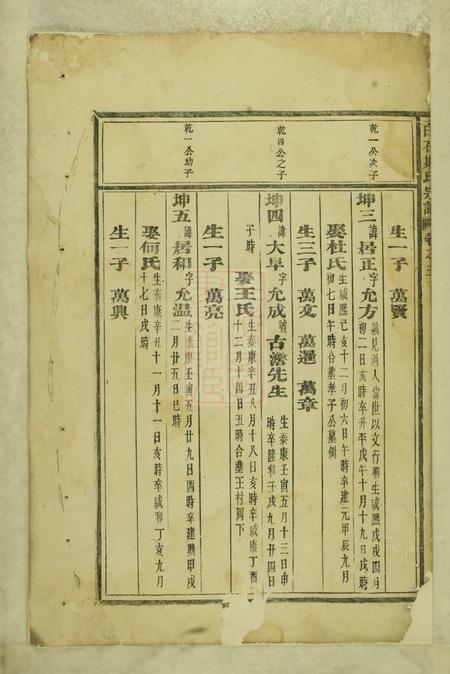 生一子 萬賢
乾一公次子
坤三 諱居正字允方 識見過人當世以文行稱生咸熙戊戌四月
初二日亥時卒升平戊午十月十九日戌時
娶杜氏 生咸熙己亥十二月初六日午時卒建元甲辰九月
初七日午時合葬孝子公墓側
生三子 萬文 萬選 萬章
乾四公之子
坤四 諱大早字允成號古澹先生 生泰康壬寅五月十三日申
時卒隆和壬戌九月廿四日
子時
娶王氏 生泰康辛丑八月十八日亥時卒咸康丁酉
十二月十四日丑時合葬王村園下
生一子 萬亮
乾一公幼子
坤五 諱居和字允溫 生泰康壬寅五月廿九日酉時卒建興甲戌
二月廿五日巳時
娶何氏 生泰康辛丑十一月十一日亥時卒咸和丁亥九月
十七日戌時
生一子 萬興